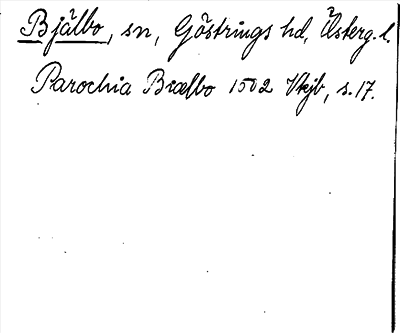 Bjälbo, sn, Göstrings hd, Österg. l.
Parochia Bixlbo 1502 Vkjb, s. 17.